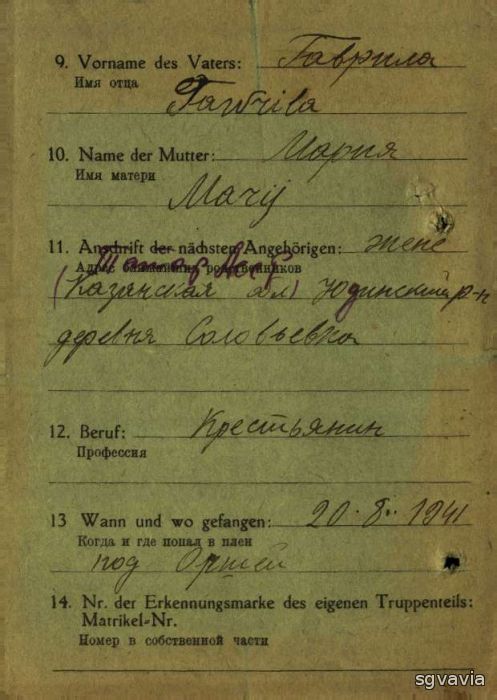 9. Vorname des Vaters: Гаврила
Имя отца
Tawrila
10. Name der Mutter: Мария
Имя матери
Marij
11. Anschrift der nächsten Angehörigen: жене
Адрес ближайших родственников
Татар АССР
(Казанская обл) Юдинский р-н
деревня Соловьевка
12. Beruf: Крестьянин
Профессия
13 Wann und wo gefangen: 20.8. 1941
Когда и где попал в плен
под Оршей
14. Nr. der Erkennungsmarke des eigenen Truppenteils:
Matrikel-Nr.
Номер в собственной части
sgvavia